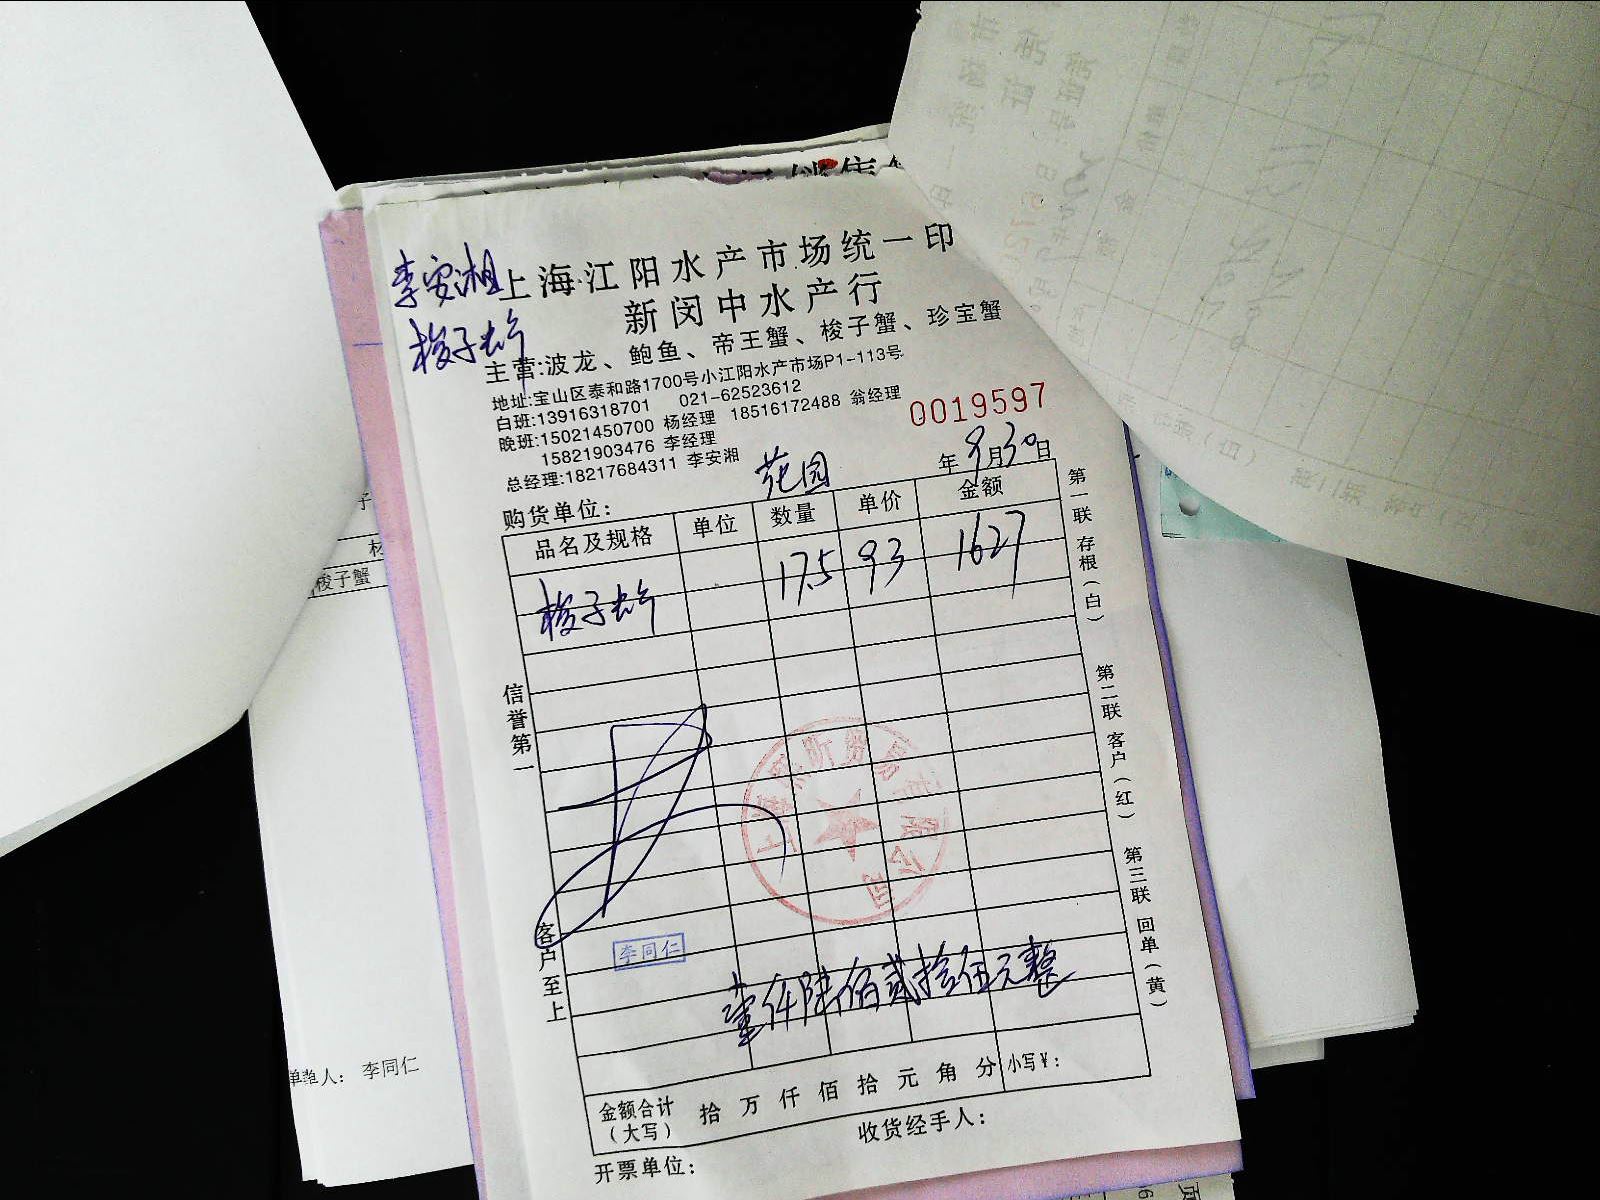 李安湘
梭子蟹
上海江阳水产市场统一印
新闵中水产行
主营:波龙、鲍鱼、帝王蟹、梭子蟹、珍宝蟹
地址:宝山区泰和路1700号小江阳水产市场P1-113号
白班:13916318701 021-62523612
晚班:15021450700 杨经理 18516172488 翁经理
15821903476 李经理
总经理:18217684311 李安湘
0019597
年9月30日
购货单位: 花园
品名及规格 单位 数量 单价 金额
梭子蟹 17.5 93 1627
信誉第一
客户至上
李同仁
壹仟陆佰贰拾伍元整
金额合计(大写) 拾万仟佰拾元角分 小写¥:
收货经手人:
开票单位:
第一联 存根(白)
第二联 客户(红)
第三联 回单(黄)
梭子蟹
李同仁